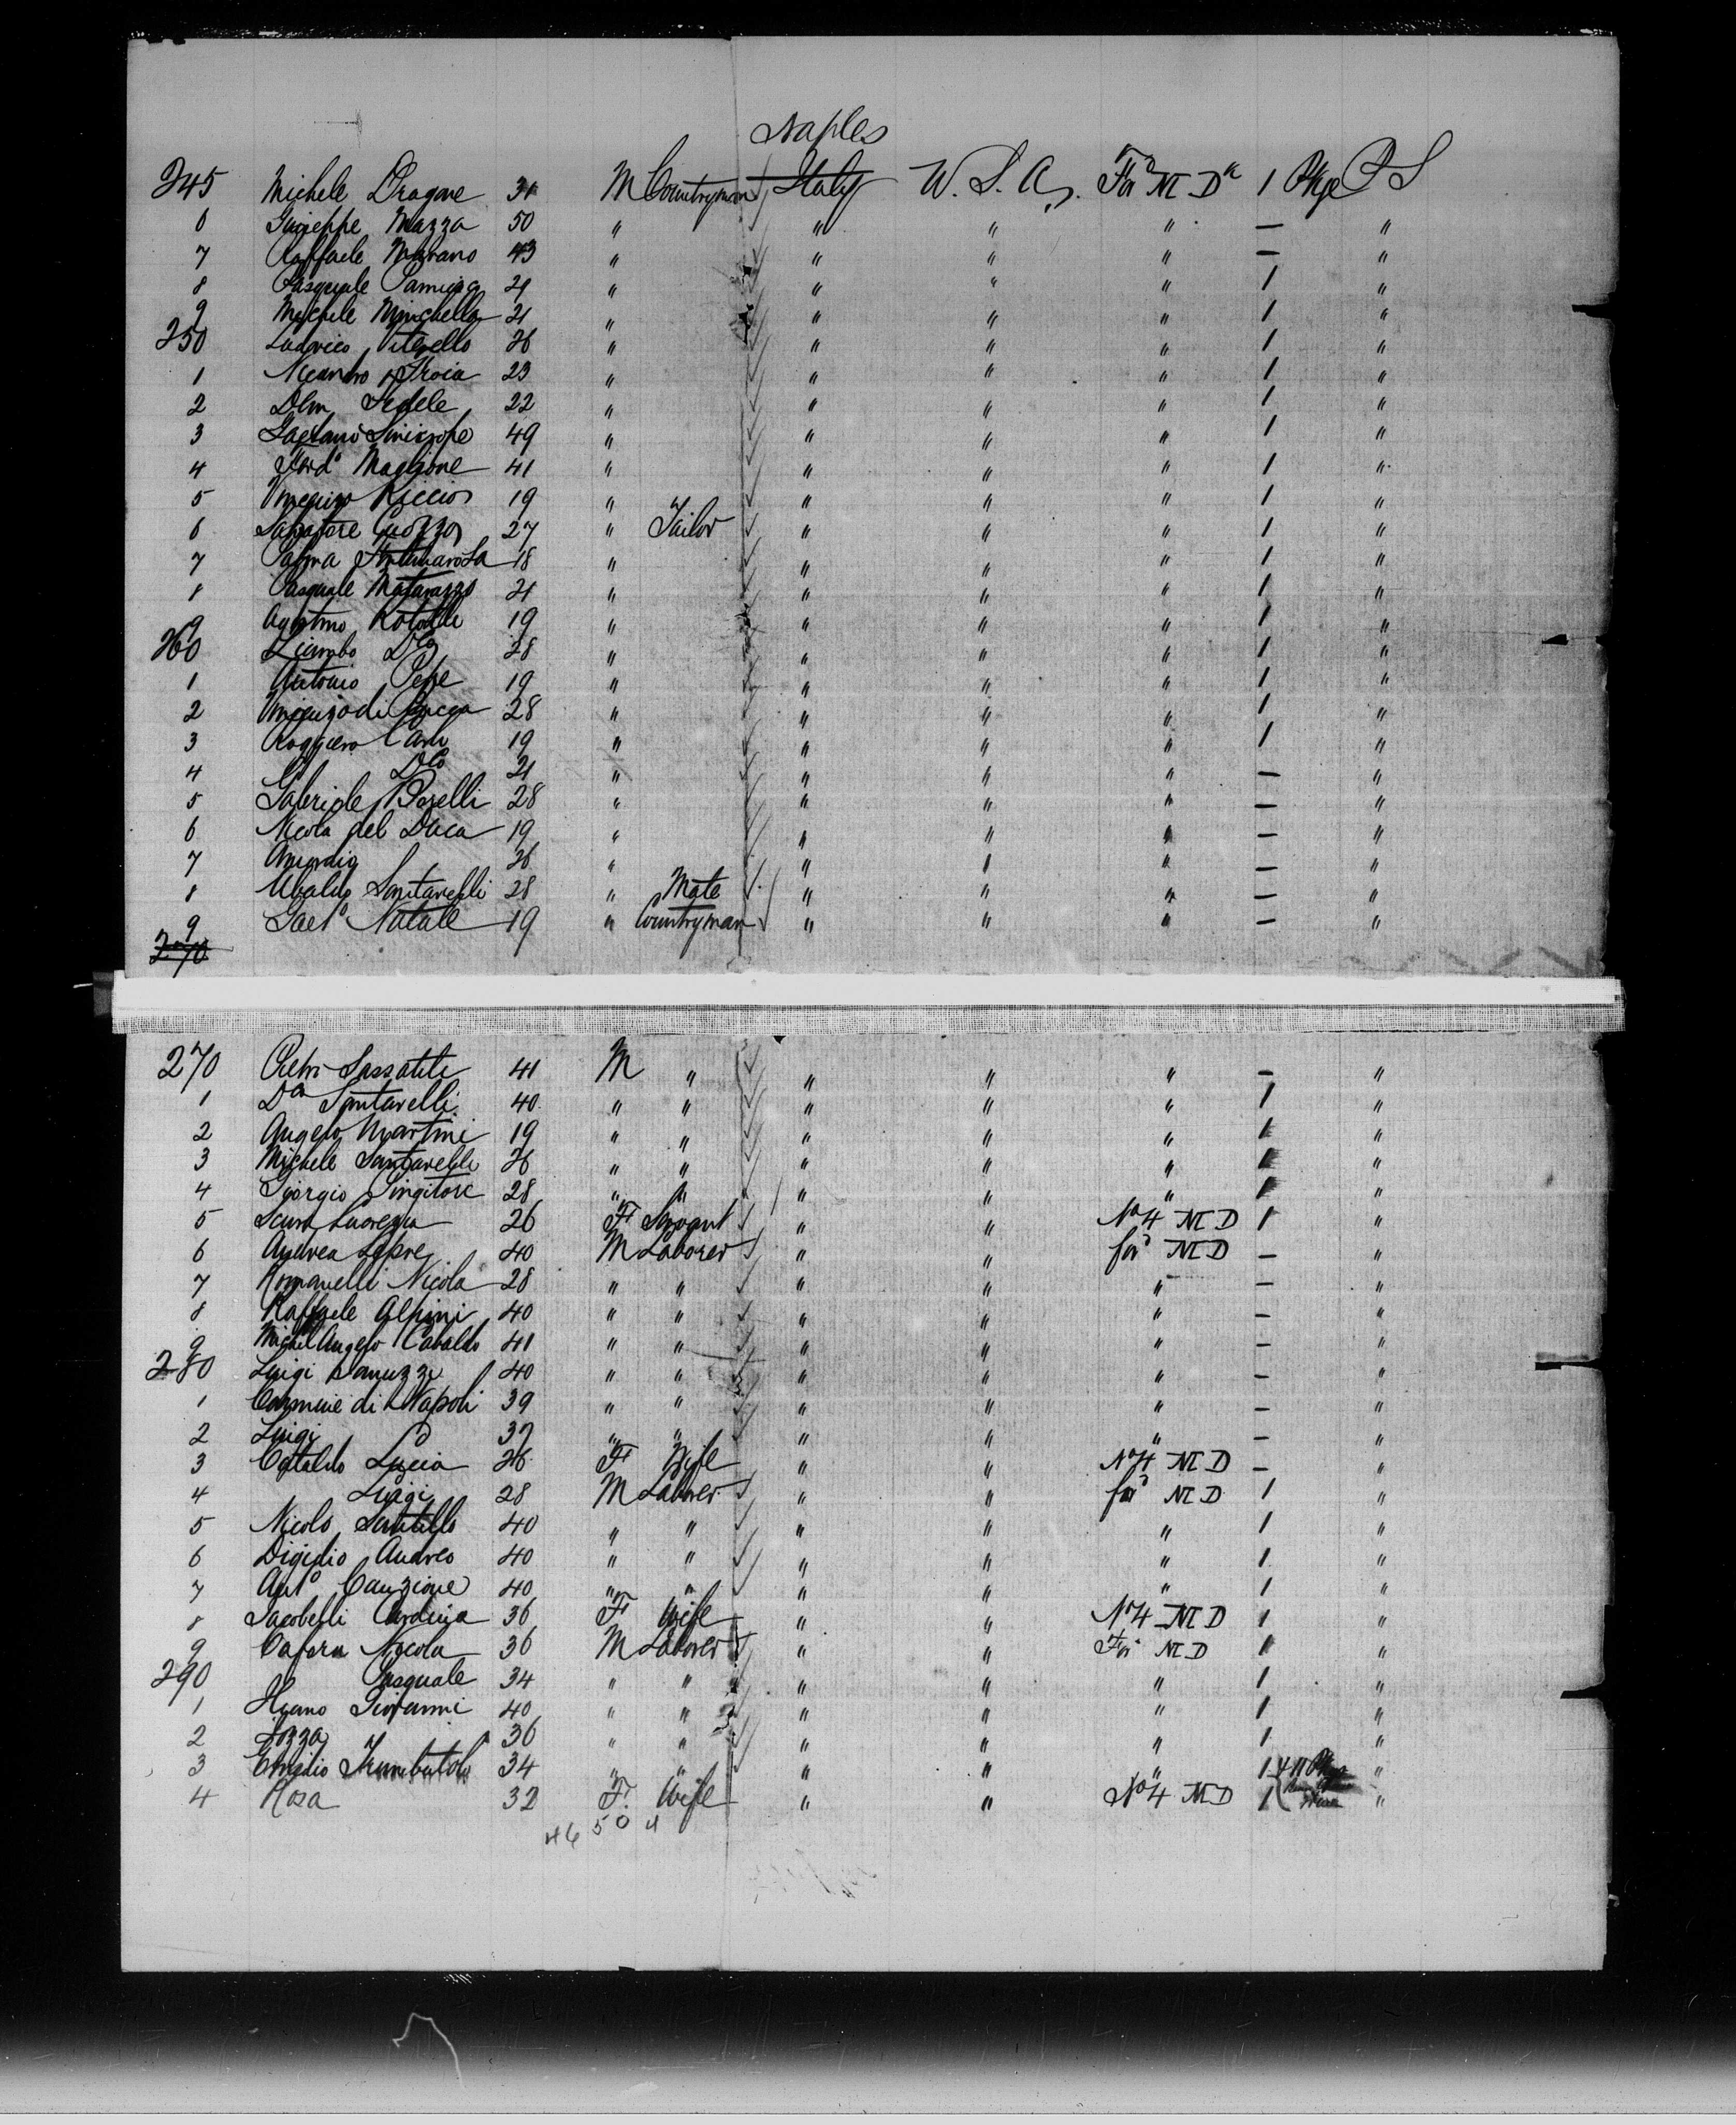 Naples
245 Michele Dragone 31 M Countryman Italy U. S. A. For M D 1 Pkge P S
6 Giuseppe Mazza 50 " " " " — "
7 Raffaele Marano 43 " " " " — "
8 Pasquale 21 " " " " 1 "
9 Michele Minichella 21 " " " " 1 "
250 Ludovico Vitevello 26 " " " " 1 "
1 Nicandro Troia 23 " " " " 1 "
2 Dem Fedele 22 " " " " 1 "
3 Gaetano 49 " " " " 1 "
4 Ferdo Maglione 41 " " " " 1 "
5 Vincenzo Riccio 19 " " " " 1 "
6 Salvatore Cuozzo 27 " Tailor " " " 1 "
7 Palma 18 " " " " 1 "
8 Pasquale Matarazzo 21 " " " " 1 "
9 Agostino 19 " " " " 1 "
260 Do 28 " " " " 1 "
1 Antonio Pepe 19 " " " " 1 "
2 Vincenzo di 28 " " " " 1 "
3 Roggiero 19 " " " " 1 "
4 Do 21 " " " " — "
5 Gabriele Borelli 28 " " " " — "
6 Nicola del Duca 19 " " " " — "
7 26 " " " " — "
8 Ubaldo Santarelli 28 " Mate " " " — "
9 Gaeto Natale 19 " Countryman " " " — "
270
270 Pietro Sassatile 41 M " " " " — "
1 Do Santarelli 40 " " " " " 1 "
2 Angelo Martini 19 " " " " " 1 "
3 Michele Santarelli 26 " " " " " 1 "
4 Giorgio Pingitore 28 " " " " " 1 "
5 26 F Servant " " No 4 M D 1 "
6 Andrea Lepre 40 M Laborer " " for M D — "
7 Romanelli Nicola 28 " " " " " — "
8 Raffaele Alpini 40 " " " " " — "
9 Michel Angelo Cataldo 41 " " " " " — "
280 Luigi 40 " " " " " — "
1 Carmine di Napoli 39 " " " " " — "
2 Luigi 37 " " " " " — "
3 Cataldo Lucia 26 F Wife " " No 4 M D — "
4 Luigi 28 M Laborer " " for M D 1 "
5 Nicolo Santillo 40 " " " " " 1 "
6 Digidio Andreo 40 " " " " " 1 "
7 Anto Canzione 40 " " " " " 1 "
8 Jacobelli 36 F Wife " " No 4 M D 1 "
9 Nicola 36 M Laborer " " For M D 1 "
290 Pasquale 34 " " " " " 1 "
1 Giovanni 40 " " " " " 1 "
2 36 " " " " " 1 "
3 34 " " " " " 1 "
4 Rosa 32 F. Wife " " No 4 M D 1 "
46 50 4